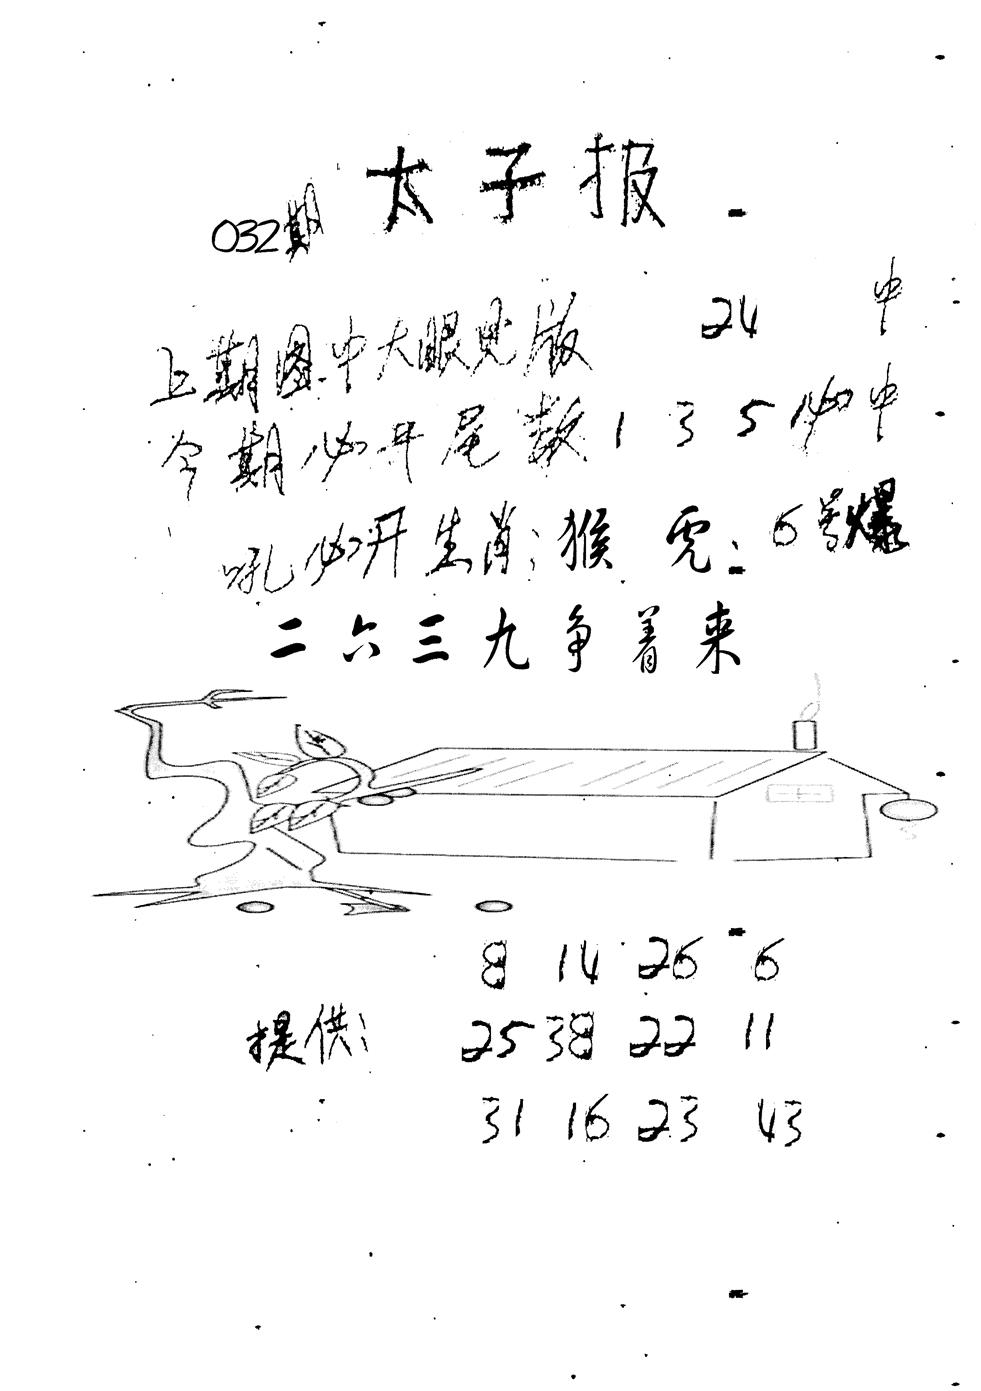 太子报
032期
上期图中大眼见版 24 中
今期必开尾数1 3 5必中
吼必开生肖:猴 虎: 6号爆
二六三九争着来
8 14 26 6
提供: 25 38 22 11
31 16 23 43